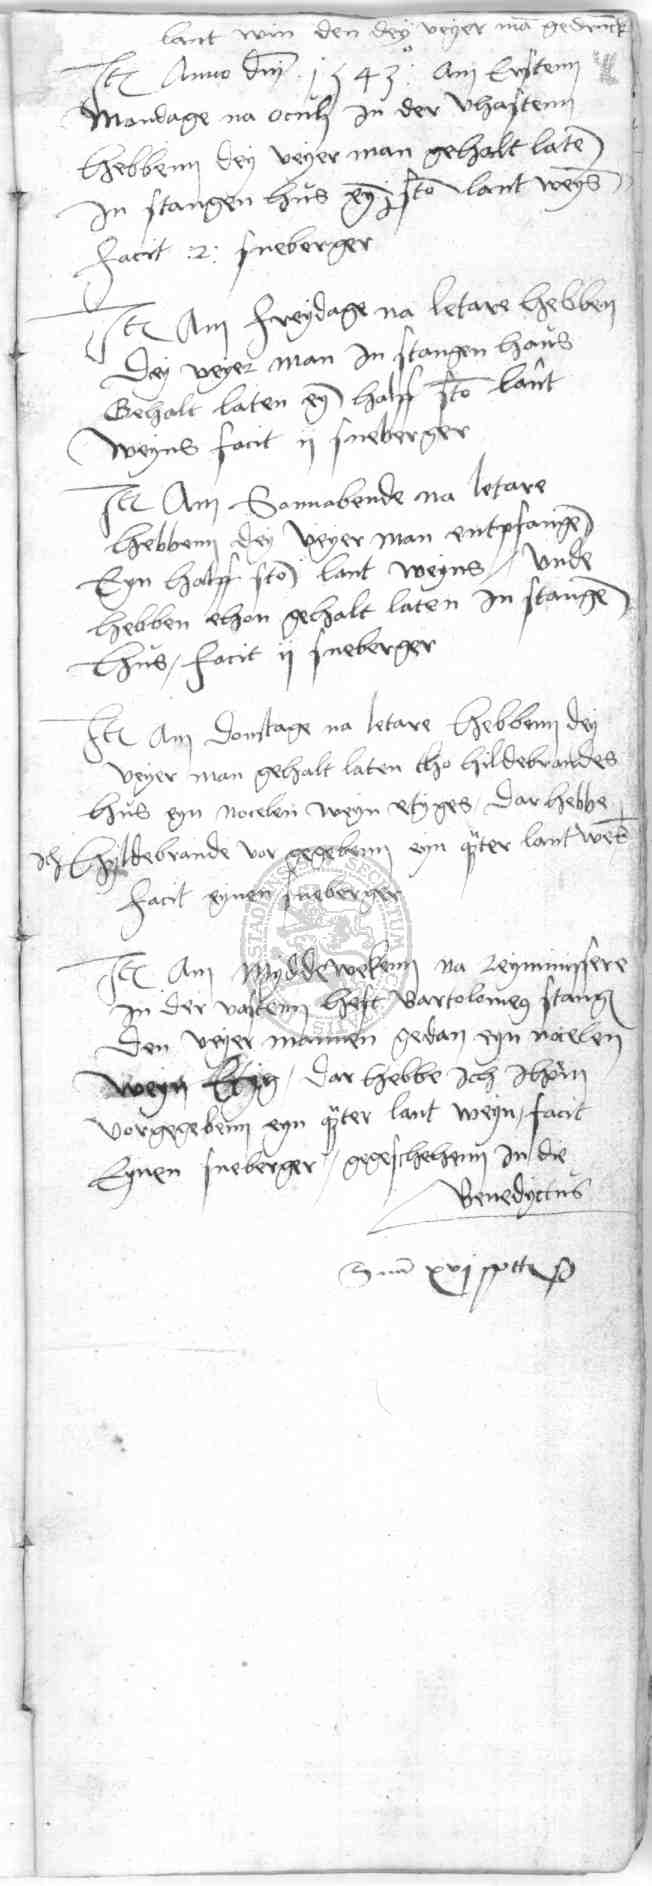 lant win den dey veyer mā gedrūck
Itē Anno dnī 1543° Am Ersten
Mandage na oculj In der vhastenn
hebbenn dey veyer man gehalt latē
In stangen hus eȳ stō lant weyns
facit :2: sneberger
Itē Am freydage na letare hebben
dey veyer man In stangen haus
Gehalt laten eȳ halff stō lant
weyns facit ij sneberger
Itē Am Sonnabende na letare
hebbenn dey veyer man entpfangē
Eyn halff stō lant weyns / Unde
hebben ethon gehalt laten In stangē
hus / facit ij sneberger
Itē Am donstage na letare hebbenn dey
veyer man gehalt laten tho hildebrandes
hus eyn nocelen weyn etyges / dar hebbe
ich hyldebrande vor gegebenn eyn qrter lant
facit eynen sneberger
SECRETUM
Itē Am Myddewekenn na Reyminissere
In der vastenn heft Bartolomeg stangē
den veyer mannen gedan eyn nocelen
weyn Etig / dar hebbe Ich
vorgegebenn eyn qrter lant weyn / facit
Eynen sneberger / gegeschehenn In die
Benedyctus
Sumā xvj